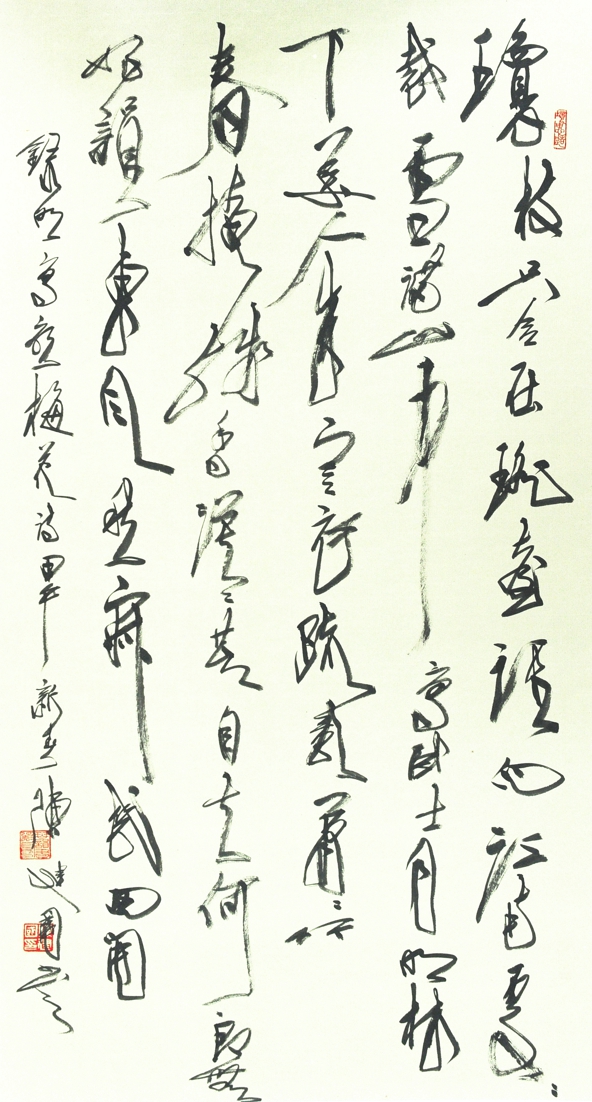 瓊枝只合在瑤臺誰向江南處〻
栽雪滿山中高臥士月明林
下美人來寒依疏影蕭〻竹
春掩殘香漠〻苔自去何郎無
好韻東風愁寂幾回開
錄明高啟梅花詩甲午新春陳